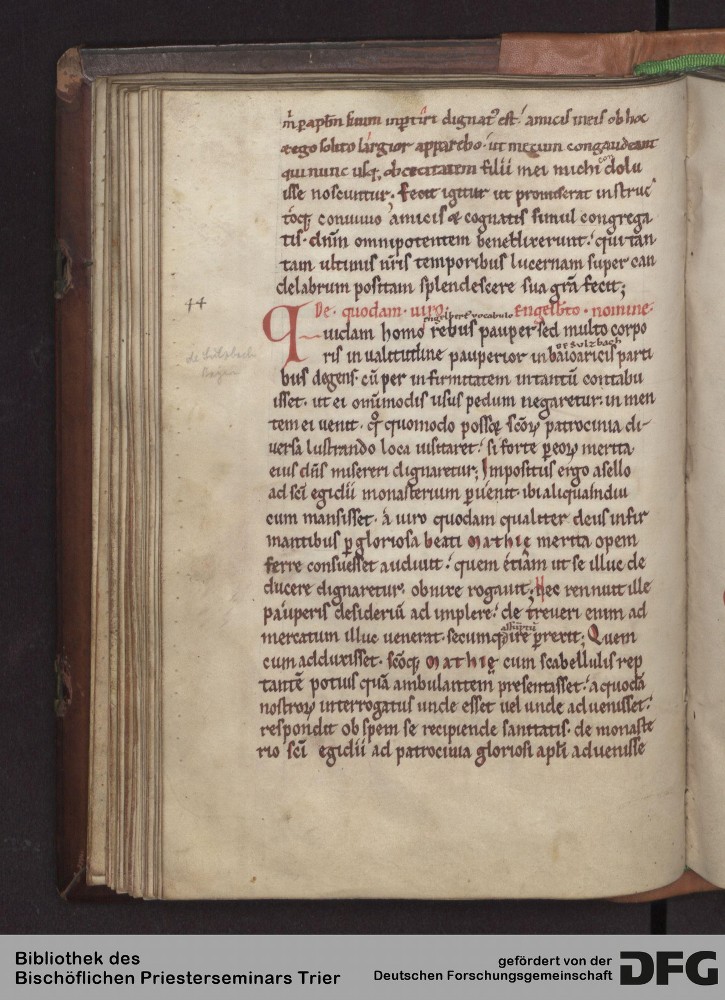 m̄ p aptm̄ suum inptiri dignatꝰ est. amicis meis ob hoc
& ego solito largior apparebo. ut mecum congaudeant
qui nunc usq; ob cecitatem filii mei michi con dolu
isse noscuntur. Fecit igitur ut promiserat instruc
toq; conuiuio amicis & cognatis simul congrega
tis. dn̄m omnipotentem benedixerunt. qui tan
tam ultimis nr̄is temporibus lucernam super can
delabrum positam splendescere sua gr̄a fecit;
De. quodam. uiro. Engelb̄to. nomine.
engelbert vocabulo
44
Quidam homo rebus pauper sed multo corpo
de Sulzbach
ris in ualitudine pauperior in baioaricis parti
bus degens. cū per infirmitatem in tantū contabu
isset. ut ei omnimodis usus pedum negaretur. in men
tem ei uenit. qͦ quomodo posset sc̄oꝝ patrocinia di-
uersa lustrando loca uisitaret. si forte p eoꝝ merita
eius dn̄s misereri dignaretur; Impositus ergo asello
ad sc̄i egidii monasterium puenit. ibi aliquamdiu
cum mansisset. a uiro quodam qualiter deus infir
mantibus p gloriosa beati Mathie merita opem
ferre consuesset audiuit. quem etiam ut se illuc de
ducere dignaretur. obnixe rogauit. Nec rennuit ille
pauperis desideriū ad implere. de treueri enim ad
mercatum illuc uenerat. secumq; ire prexit; Quem
cum adduxisset. sc̄oq; Mathie cum scabellulis rep
tantē potius quā ambulantem presentasset. a quodā
nostroꝝ interrogatus unde esset uel unde aduenisset.
respondit ob spem se recipiende sanitatis. de monaste
rio sc̄i egidii ad patrocinia gloriosi apl̄i aduenisse
Bibliothek des
Bischöflichen Priesterseminars Trier
gefördert von der
Deutschen Forschungsgemeinschaft
DFG